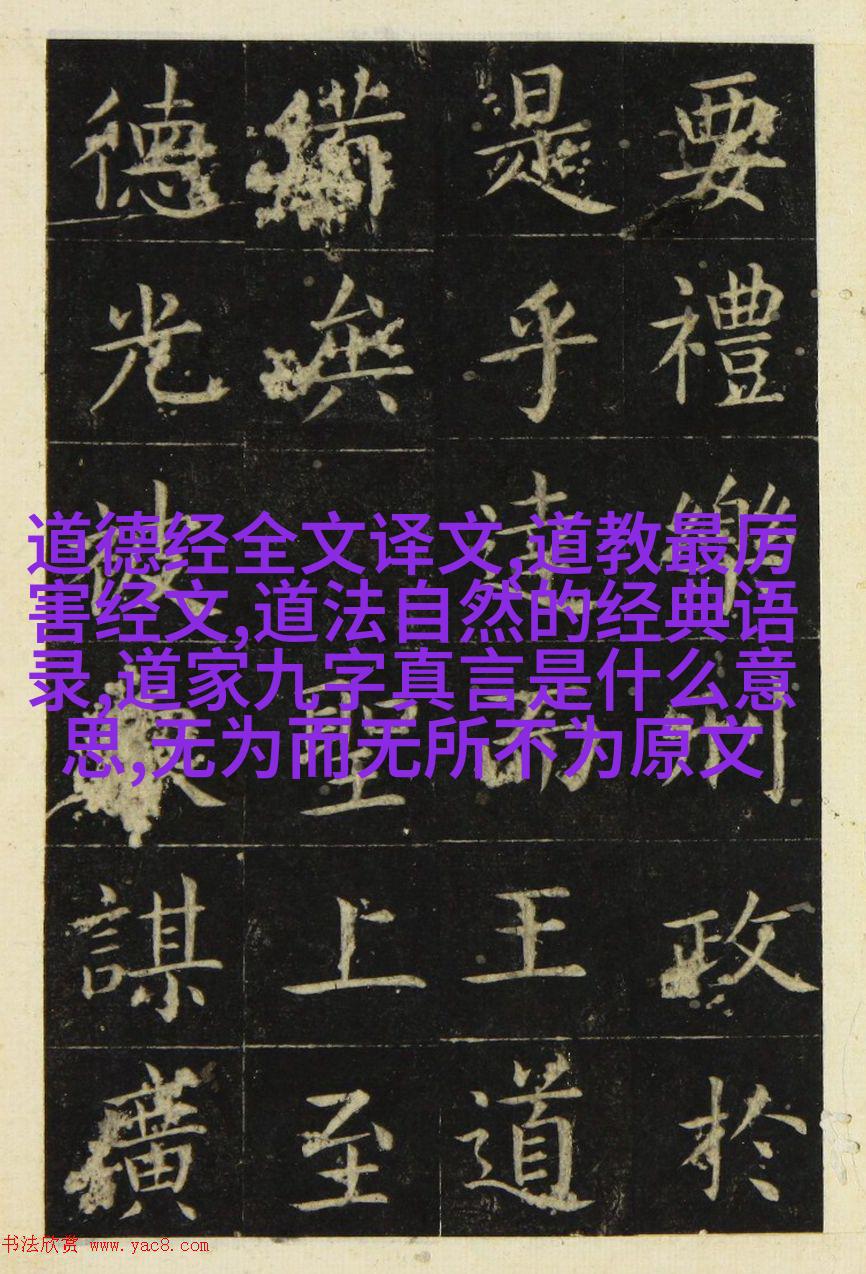 要禮樂刑政於
是乎達而王道
備 聖上至
德光被謀廣
道德经全文译文,道教最厉
害经文,道法自然的经典语
录,道家九字真言是什么意
思,无为而无所不为原文
书法欣赏 www.yac8.com